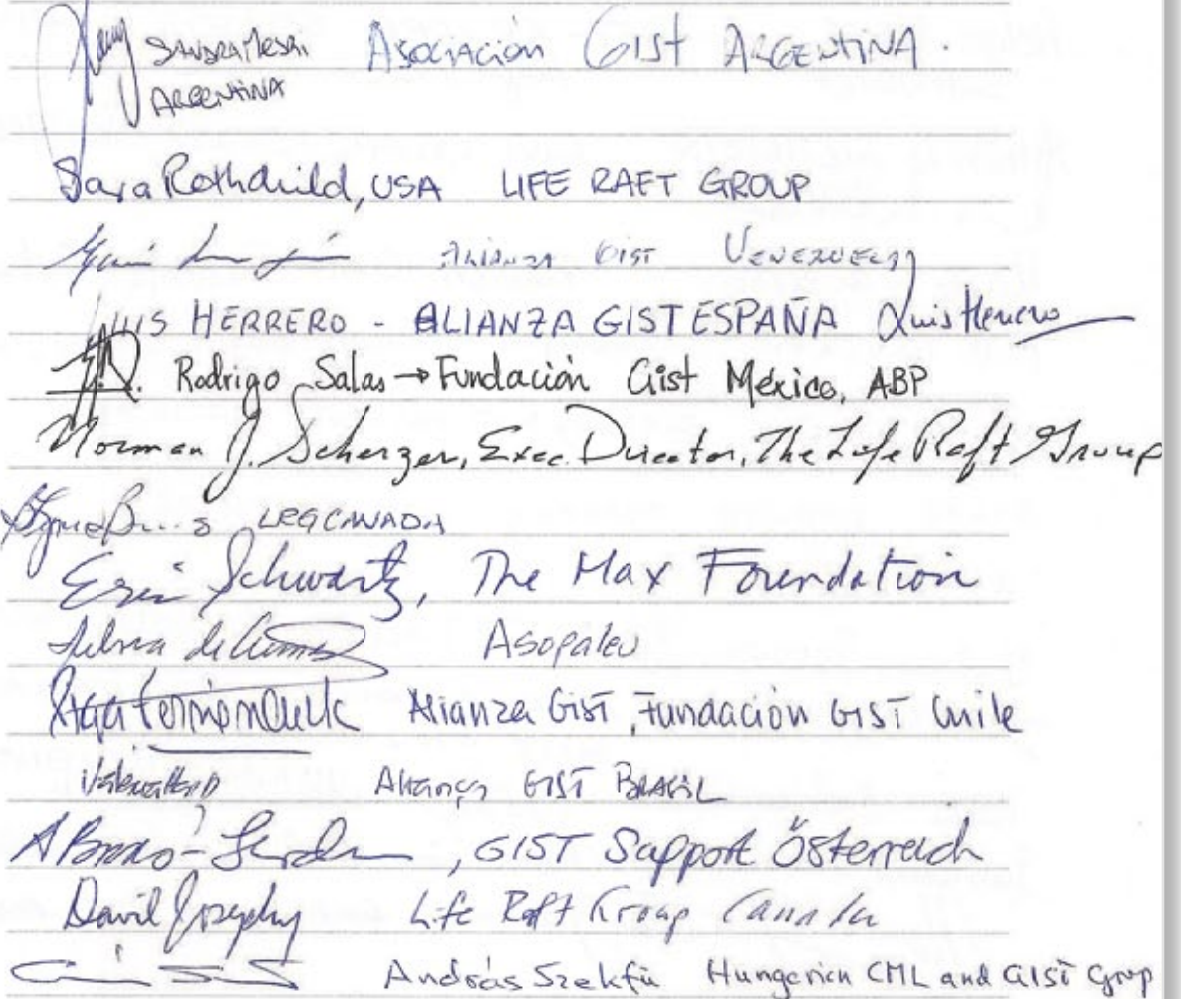 SANDRA MESRI Asociación GIST ARGENTINA.
ARGENTINA
Sara Rothchild, USA LIFE RAFT GROUP
ALIANZA GIST VENEZUELA
LUIS HERRERO - ALIANZA GIST ESPAÑA Luis Herrero
Rodrigo Salas → Fundación Gist México, ABP
Norman J. Scherzer, Exec. Director, The Life Raft Group
LRG CANADA
Erin Schwartz, The Max Foundation
Asopaleu
Alianza GIST, Fundación GIST Chile
Aliança GIST BRASIL
, GIST Support Österreich
David Josephy Life Raft Group Canada
András Szekfü Hungarian CML and GIST Group